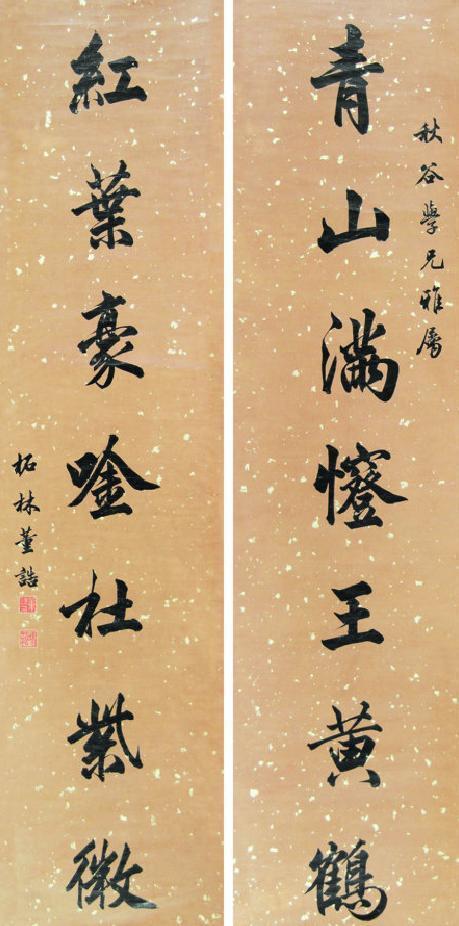 秋谷學兄雅屬
青山滿王黄鶴
紅葉豪唫杜紫微
柘林董誥